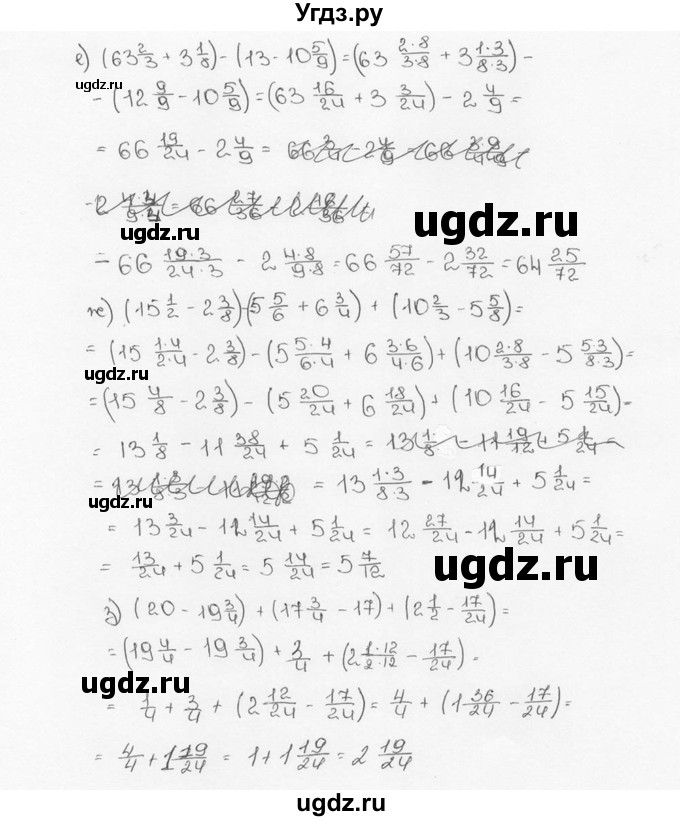 Угдз.ру
е) (63 2/3 + 3 1/8) - (13 - 10 5/9) = (63 2·8/3·8 + 3 1·3/8·3) -
- (12 9/9 - 10 5/9) = (63 16/24 + 3 3/24) - 2 4/9 =
= 66 19/24 - 2 4/9 =
ugdz.ru
ugdz.ru
= 66 19·3/24·3 - 2 4·8/9·8 = 66 57/72 - 2 32/72 = 64 25/72
ж) (15 1/2 - 2 3/8) - (5 5/6 + 6 3/4) + (10 2/3 - 5 5/8) =
= (15 1·4/2·4 - 2 3/8) - (5 5·4/6·4 + 6 3·6/4·6) + (10 2·8/3·8 - 5 5·3/8·3) =
ugdz.ru
= (15 4/8 - 2 3/8) - (5 20/24 + 6 18/24) + (10 16/24 - 5 15/24) =
ugdz.ru
= 13 1/8 - 11 38/24 + 5 1/24 = 13 1/8 - 11 19/12 + 5 1/24 =
= 13 1·3/8·3 - 12 14/24 + 5 1/24 =
ugdz.ru
= 13 3/24 - 12 14/24 + 5 1/24 = 12 27/24 - 12 14/24 + 5 1/24 =
= 13/24 + 5 1/24 = 5 14/24 = 5 7/12
ugdz.ru
з) (20 - 19 3/4) + (17 3/4 - 17) + (2 1/2 - 17/24) =
= (19 4/4 - 19 3/4) + 3/4 + (2 1·12/2·12 - 17/24) =
ugdz.ru
= 1/4 + 3/4 + (2 12/24 - 17/24) = 4/4 + (1 36/24 - 17/24) =
ugdz.ru
= 4/4 + 1 19/24 = 1 + 1 19/24 = 2 19/24
ugdz.ru